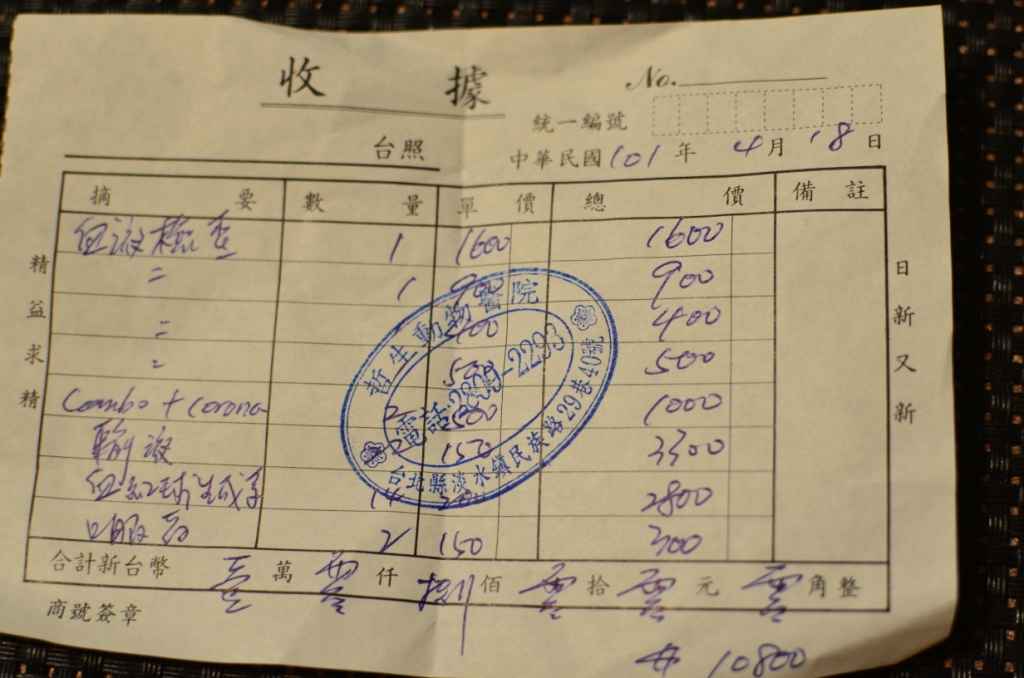 收據
No.
統一編號
台照
中華民國101年4月18日
摘要 數量 單價 總價 備註
血液檢查 1 1600 1600
〃 1 900 900
〃 400 400
〃 500 500
Combo + Corona 2 500 1000
輸液 150 3300
血紅球生成素 14 200 2800
口服藥 2 150 300
合計新台幣 壹萬零仟捌佰零拾零元零角整
商號簽章
# 10800
精益求精
日新又新
哲生動物醫院
電話:2809-2293
台北縣淡水鎮民族路29巷40號